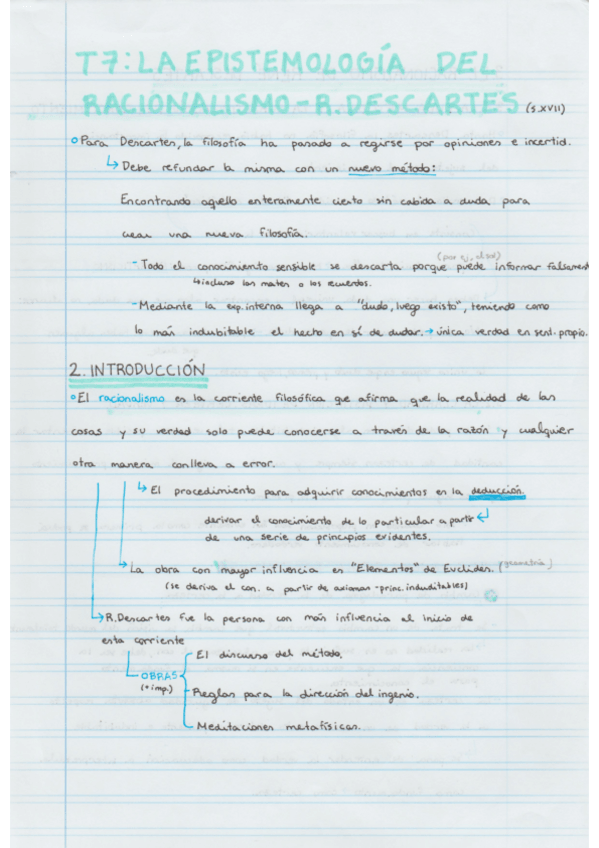 T7: LA EPISTEMOLOGÍA DEL
RACIONALISMO - R. DESCARTES (s.XVII)
Para Descartes, la filosofía ha pasado a regirse por opiniones e incertid.
↳ Debe refundar la misma con un nuevo método:
Encontrando aquello enteramente cierto sin cabida a duda para
crear una nueva filosofía.
(por ej, el sol)
- Todo el conocimiento sensible se descarta porque puede informar falsament
↳ incluso las mates o los recuerdos.
- Mediante la exp. interna llega a "dudo, luego existo", teniendo como
lo más indubitable el hecho en sí de dudar. → única verdad en sent. propio.
2. INTRODUCCIÓN
El racionalismo es la corriente filosófica que afirma que la realidad de las
cosas y su verdad solo puede conocerse a través de la razón y cualquier
otra manera conlleva a error.
↳ El procedimiento para adquirir conocimientos en la deducción.
derivar el conocimiento de lo particular a partir
de una serie de principios evidentes.
La obra con mayor influencia es "Elementos" de Euclides. (geometría)
(se deriva el con. a partir de axiomas - princ. induditables)
R. Descartes fue la persona con más influencia al inicio de
esta corriente
El discurso del método.
OBRAS
(+ imp.)
Reglas para la dirección del ingenio.
Meditaciones metafísicas.